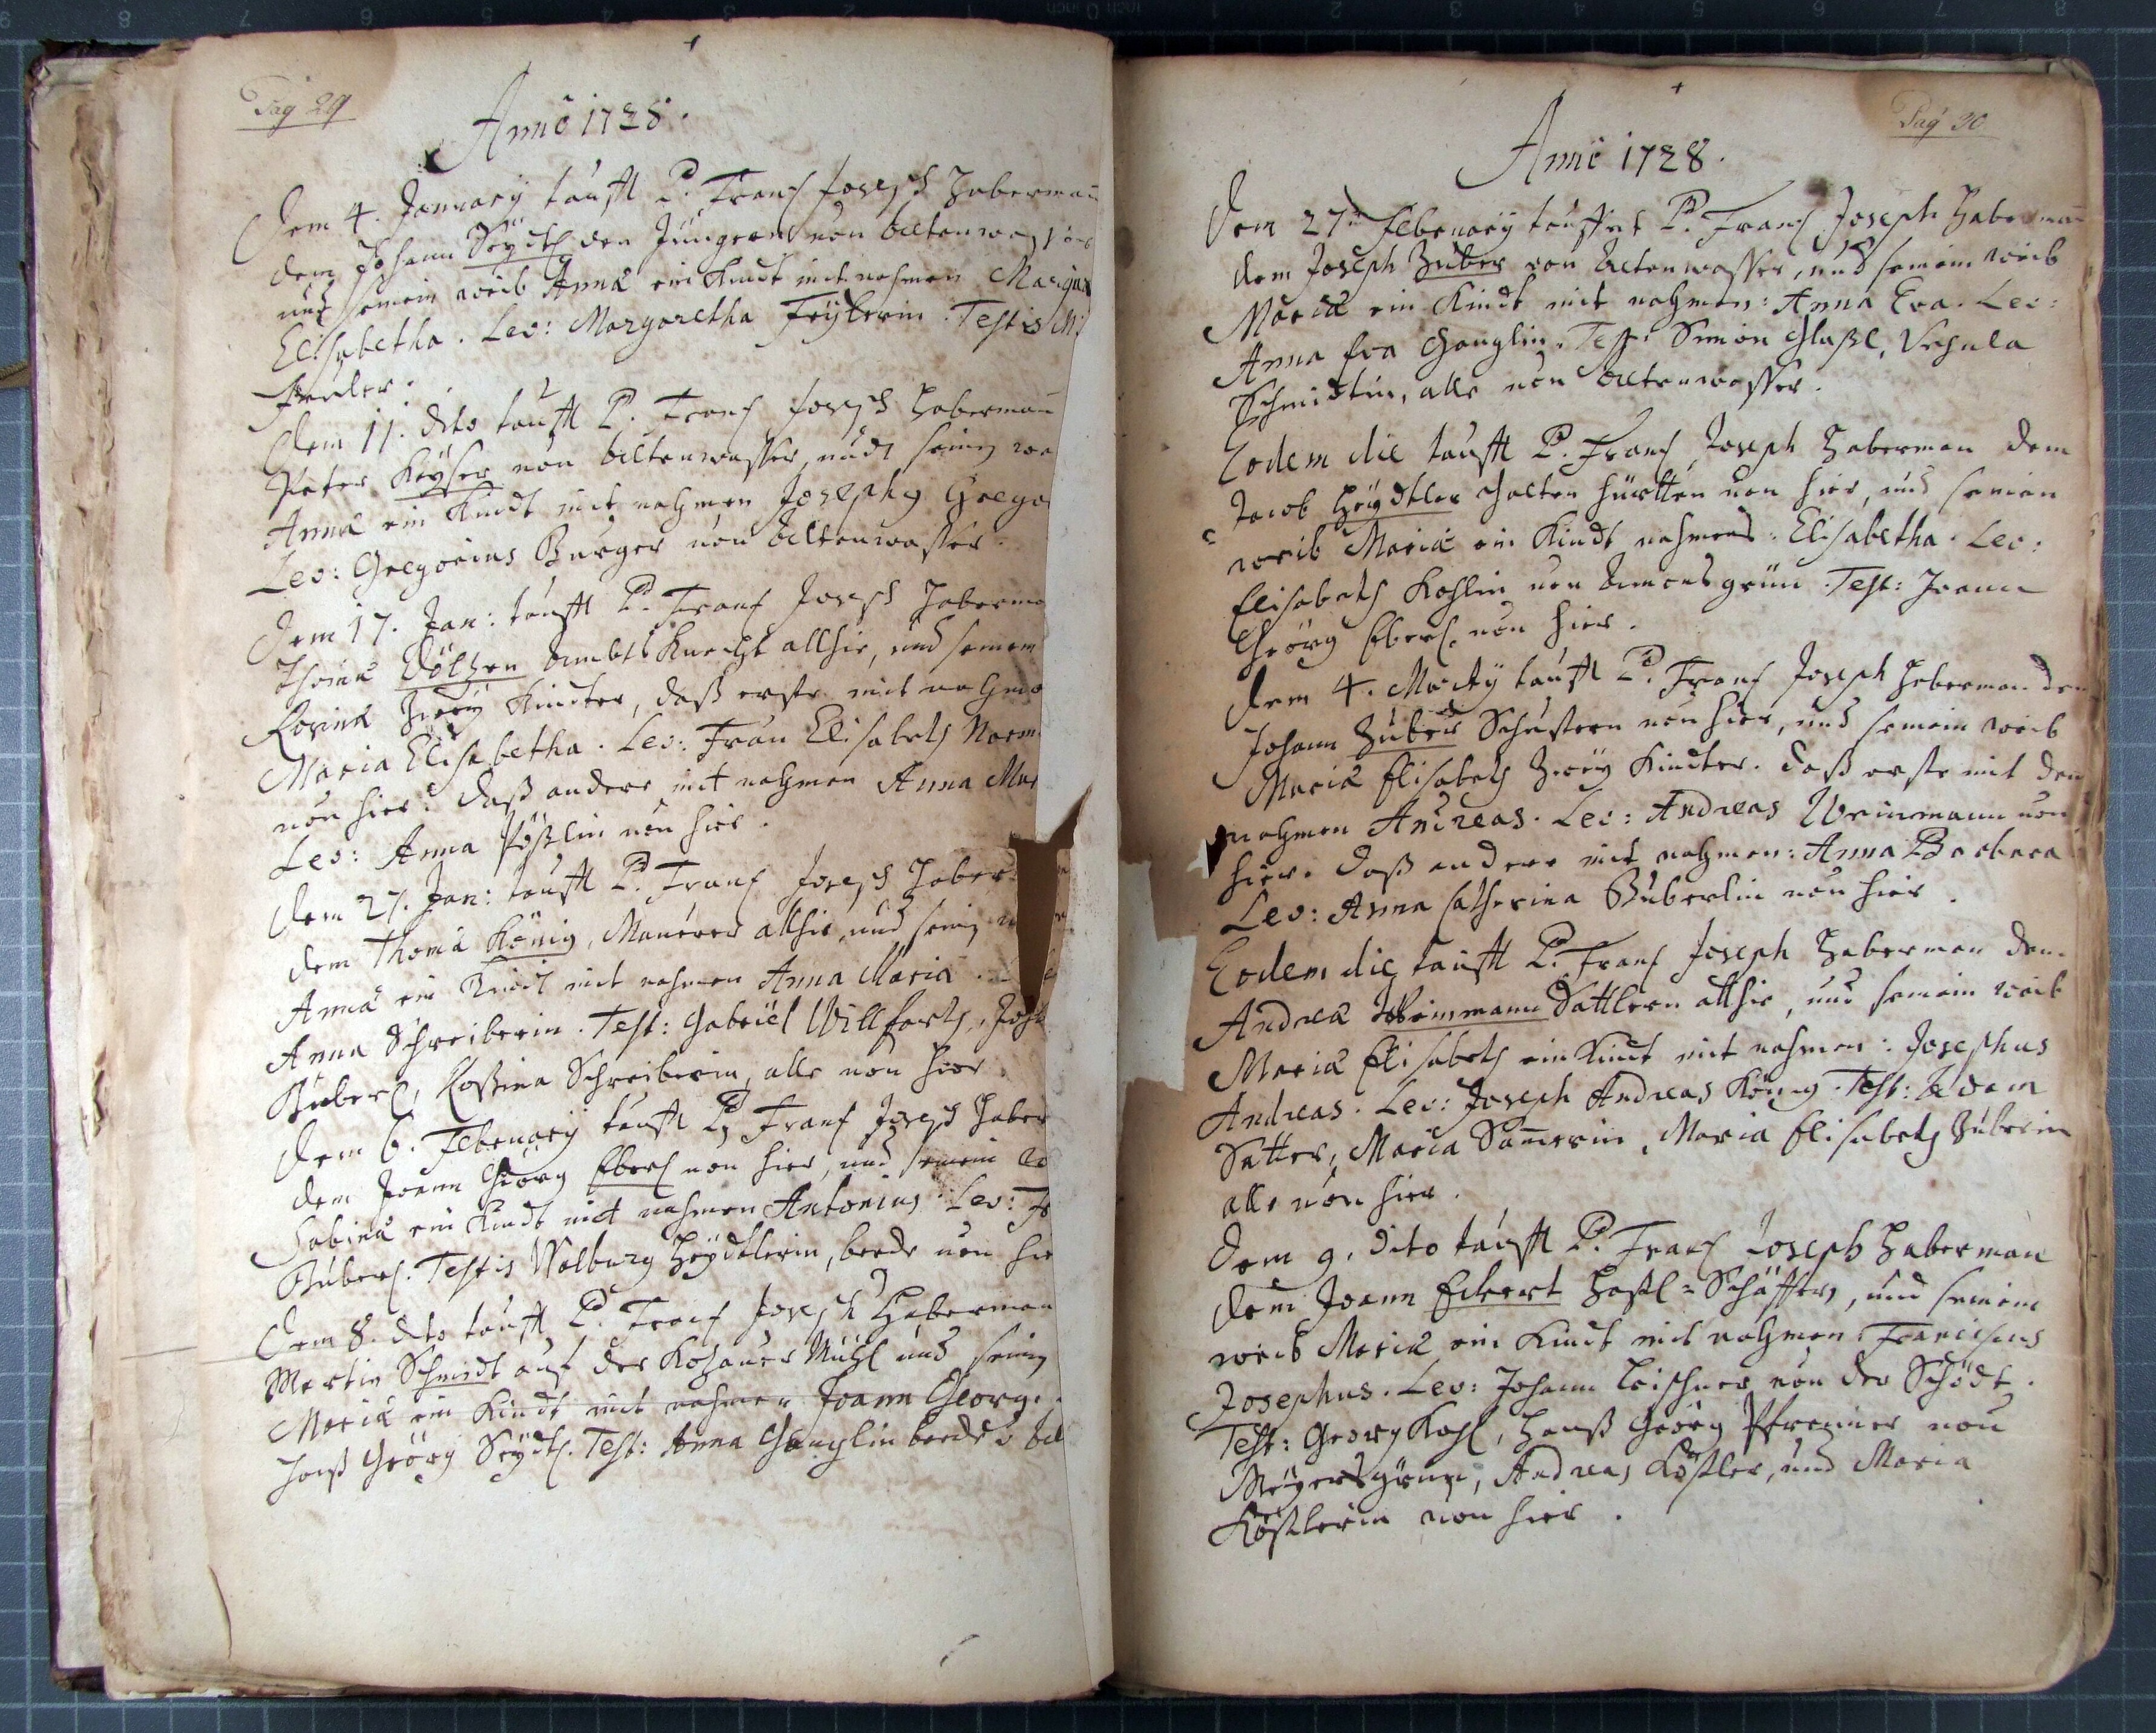 Pag 29
Anno 1728.
Dem 4. January taufft P. Frantz Joseph Haberman
dem Johann Seydtl den Jüngern von Altenwasser
und seinem weib Anna ein Kindt mit nahmen Marga
Elisabetha. Lev: Margaretha Feylerin. Testis
Dem 11. dito taufft P. Frantz Joseph Haberman
Peter Keyser von Altenwasser, undt seinem
Anna ein Kindt mit nahmen Josephg Grego
Lev: Gregorius Burger von Altenwasser.
Dem 17. Jan: taufft P. Frantz Joseph Haberma
Thoma Döltzen Ambts Knecht allhie, und seinem
Rosina Zwey Kindter, daß erste mit nahmen
Maria Elisabetha. Lev: Frau Elisabeth
von hier. daß andere mit nahmen Anna Mar
Lev: Anna Pößlin von hier.
Dem 27. Jan: taufft P. Frantz Joseph Haber
dem Thoma König, Maurer allhie, und seinem
Anna ein Kindt mit nahmen Anna Maria.
Anna Schreiberin. Test: Gabriel Willfarth, Joh
Zuberl, Rossina Schreiberin, alle von hier.
Dem 6. February taufft P. Frantz Joseph Haber
dem Joann Georg Eberl von hier, und seinem
Sabina ein Kindt mit nahmen Antonius. Lev:
Zuberl. Testis Walburg Heydtlerin, beede von hie
Dem 8. dito taufft P. Frantz Joseph Haberman
Martin Schmidt auf der Kohauer Mühl und seinem
Maria ein Kindt mit nahmen Joann George.
Hanß Geörg Seydtl. Test: Anna Ganglin beede v. Alt
Pag 30
Anno 1728.
Dem 27. February tauffet P. Frantz Joseph Haberman
dem Joseph Zuber von Altenwasser, und seinem weib
Maria ein Kindt mit nahmen: Anna Eva. Lev:
Anna Eva Ganglin. Test: Simon Glaßl, Ursula
Schmidtin, alle von Altenwasser.
Eodem die taufft P. Frantz Joseph Haberman dem
Jacob Heydtler hürtten von hier, und seinem
weib Maria ein Kindt nahmens: Elisabetha. Lev:
Elisabeth Kohlin von Amonsgrün. Test: Joann
Geörg Eberl. von hier.
Dem 4. Marty taufft P. Frantz Joseph Haberman dem
Johann Zuber Schustern von hier, und seinem weib
Maria Elisabeth Zwey Kindter. daß erste mit dem
nahmen Andreas. Lev: Andreas Weinmann von
hier. daß andere mit nahmen: Anna Barbara
Lev: Anna Catherina Zuberlin von hier.
Eodem die taufft P. Frantz Joseph Haberman dem
Andrea Weinmann Sattlern allhie, und seinem weib
Maria Elisabeth ein Kindt mit nahmen: Josephus
Andreas. Lev: Joseph Andreas König. Test: Adam
Sutter, Maria Sam̄erin, Maria Elisabeth Zuberin
alle von hier.
Dem 9. dito taufft P. Frantz Joseph Haberman
dem Joann Eckert Schäffer, und seinem
weib Maria ein Kindt mit nahmen Franciscus
Josephus. Lev: Johann Leischner von der Schödt.
Test: Georg Kohl, Hanß Geörg Pfrenner von
Meyersgrün, Andreas Köstler, und Maria
Köstlerin von hier.